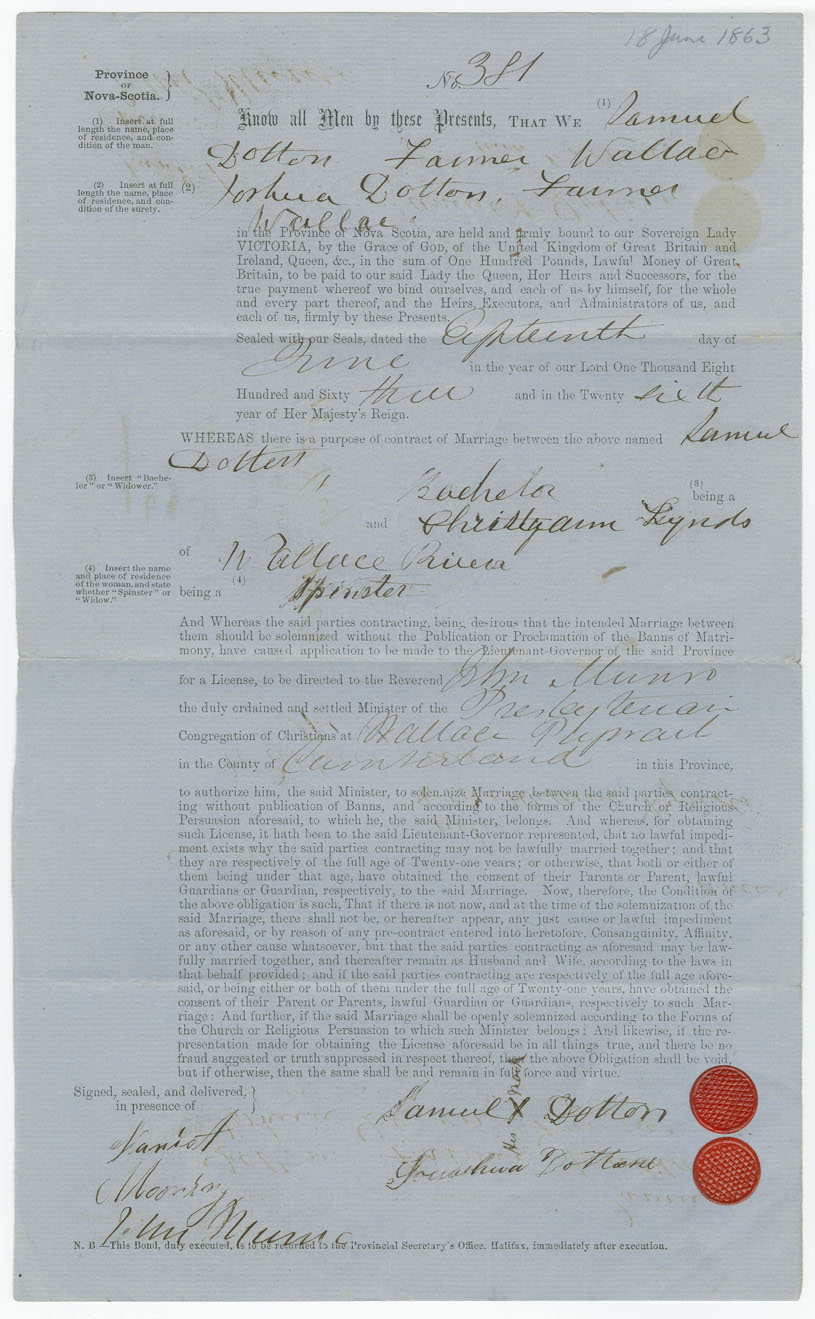 18 June 1863
Province
OF
Nova-Scotia.
No. 381
(1) Insert at full
length the name, place
of residence, and con-
dition of the man.
Know all Men by these Presents, THAT WE (1) Samuel
Dotton Farmer Wallace
(2) Insert at full
length the name, place
of residence, and con-
dition of the surely.
(2) Joshua Dotton, Farmer
Wallace
in the Province of Nova Scotia, are held and firmly bound to our Sovereign Lady
VICTORIA, by the Grace of GOD, of the United Kingdom of Great Britain and
Ireland, Queen, &c., in the sum of One Hundred Pounds, Lawful Money of Great
Britain, to be paid to our said Lady the Queen, Her Heirs and Successors, for the
true payment whereof we bind ourselves, and each of us by himself, for the whole
and every part thereof, and the Heirs, Executors, and Administrators of us, and
each of us, firmly by these Presents.
Sealed with our Seals, dated the Eighteenth day of
June in the year of our Lord One Thousand Eight
Hundred and Sixty three and in the Twenty sixth
year of Her Majesty's Reign.
WHEREAS there is a purpose of contract of Marriage between the above named Samuel
Dotten
(3) Insert "Bache-
lor" or "Widower."
Bachelor (3) being a
and Christyann Lynds
of Wallace River
(4) Insert the name
and place of residence
of the woman, and state
whether "Spinster" or
"Widow."
being a (4) Spinster
And Whereas the said parties contracting, being desirous that the intended Marriage between
them should be solemnized without the Publication or Proclamation of the Banns of Matri-
mony, have caused application to be made to the Lieutenant-Governor of the said Province
for a License, to be directed to the Reverend John Munro
the duly ordained and settled Minister of the Presbyterian
Congregation of Christians at Wallace
in the County of Cumberland in this Province,
to authorize him, the said Minister, to solemnize Marriage between the said parties contract-
ing without publication of Banns, and according to the forms of the Church or Religious
Persuasion aforesaid, to which he, the said Minister, belongs. And whereas, for obtaining
such License, it hath been to the said Lieutenant-Governor represented, that no lawful impedi-
ment exists why the said parties contracting may not be lawfully married together; and that
they are respectively of the full age of Twenty-one years; or otherwise, that both or either of
them being under that age, have obtained the consent of their Parents or Parent, lawful
Guardians or Guardian, respectively, to the said Marriage. Now, therefore, the Condition of
the above obligation is such, That if there is not now, and at the time of the solemnization of the
said Marriage, there shall not be, or hereafter appear, any just cause or lawful impediment
as aforesaid, or by reason of any pre-contract entered into heretofore, Consanguinity, Affinity,
or any other cause whatsoever, but that the said parties contracting as aforesaid may be law-
fully married together, and thereafter remain as Husband and Wife, according to the laws in
that behalf provided; and if the said parties contracting are respectively of the full age afore-
said, or being either or both of them under the full age of Twenty-one years, have obtained the
consent of their Parent or Parents, lawful Guardian or Guardians, respectively to such Mar-
riage: And further, if the said Marriage shall be openly solemnized according to the Forms of
the Church or Religious Persuasion to which such Minister belongs: And likewise, if the re-
presentation made for obtaining the License aforesaid be in all things true, and there be no
fraud suggested or truth suppressed in respect thereof, then the above Obligation shall be void,
but if otherwise, then the same shall be and remain in full force and virtue.
Signed, sealed, and delivered,
in presence of
Samuel X Dotton
his mark
Joushua Dottane
John Munro
N. B.—This Bond, duly executed, is to be returned to the Provincial Secretary's Office, Halifax, immediately after execution.